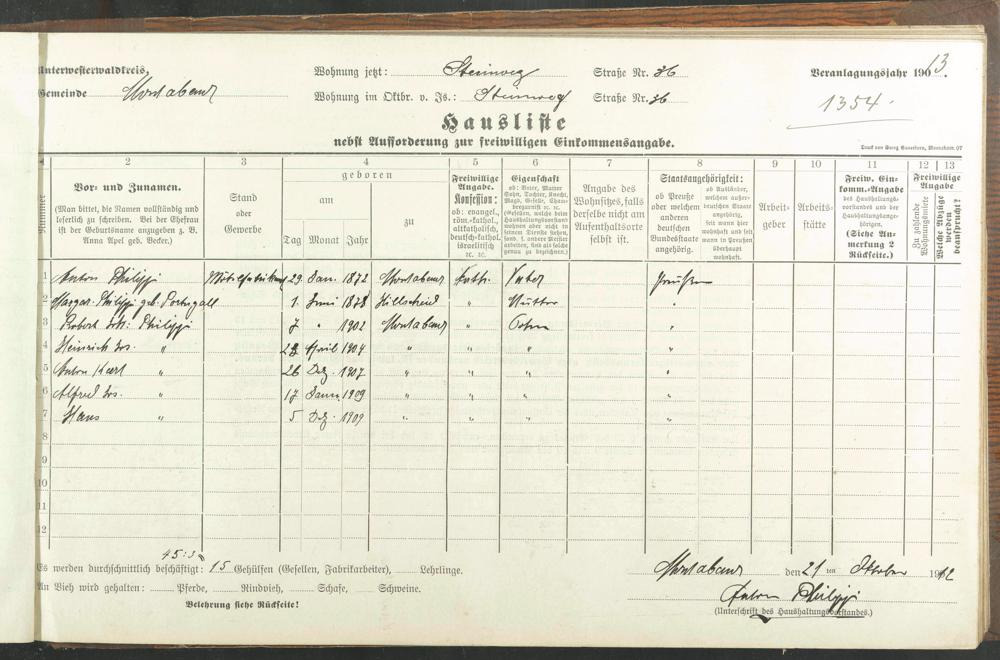 Unterwesterwaldkreis, Wohnung jetzt: Steinweg Straße Nr. 36 Veranlagungsjahr 1913.
Gemeinde Montabaur Wohnung im Oktbr. v. Js.: Steinweg Straße Nr. 36 1354.
Hausliste
nebst Aufforderung zur freiwilligen Einkommensangabe.
1 2 3 4 5 6 7 8 9 10 11 12 13
Nummer
Vor- und Zunamen.
(Man bittet, die Namen vollständig und
leserlich zu schreiben. Bei der Ehefrau
ist der Geburtsname anzugeben z. B.
Anna Apel geb. Becker.)
Stand
oder
Gewerbe
geboren
am zu
Tag Monat Jahr
Freiwillige
Angabe.
Konfession:
ob: evangel.,
röm.-kathol.,
altkatholisch,
deutsch-kathol.,
israelitisch
ec. ec.
Eigenschaft
ob: Vater, Mutter
Sohn, Tochter, Knecht,
Magd, Geselle, Cham-
bergarnist ec. ec.
(Gesellen, welche beim
Haushaltungsvorstand
wohnen und nicht in
seinem Dienste stehen,
sind f. andere Meister
arbeiten, sind als solche
genau zu bezeichnen.)
Angabe des
Wohnsitzes, falls
derselbe nicht am
Aufenthaltsorte
selbst ist.
Staatsangehörigkeit:
ob Preuße
oder welchem
anderen
deutschen
Bundesstaate
angehörig.
ob Ausländer,
welchem außer-
deutschen Staate
angehörig,
seit wann hier
wohnhaft und seit
wann in Preußen
überhaupt
wohnhaft.
Arbeit-
geber
Arbeits-
stätte
Freiw. Ein-
komm.-Angabe
des Haushaltungs-
vorstandes und der
Haushaltungsange-
hörigen.
(Siehe An-
merkung 2
Rückseite.)
Freiwillige
Angabe:
Zu zahlende
Wohnungsmiete
Welche Abzüge
werden
beansprucht?
1 Anton Philippi 29. Jan. 1872 Montabaur Kath. Vater Preußen
2 Margar. Philippi geb. Portugall 1. Juni 1878 Hillscheid " Mutter "
3 Robert Philippi 7 " 1902 Montabaur " Sohn "
4 Heinrich " April 1904 " " " "
5 Anton Karl " 26 Dez. 1907 " " " "
6 Alfred " 17 Janu. 1909 " " " "
7 Hans " 5 Dez. 1909 " " "
8
9
10
11
12
Es werden durchschnittlich beschäftigt: 15 Gehülfen (Gesellen, Fabrikarbeiter), Lehrlinge. Montabaur den 21 ten Oktober 1912
An Vieh wird gehalten: Pferde, Rindvieh, Schafe, Schweine. Anton Philippi
Belehrung siehe Rückseite! (Unterschrift des Haushaltungsvorstandes.)